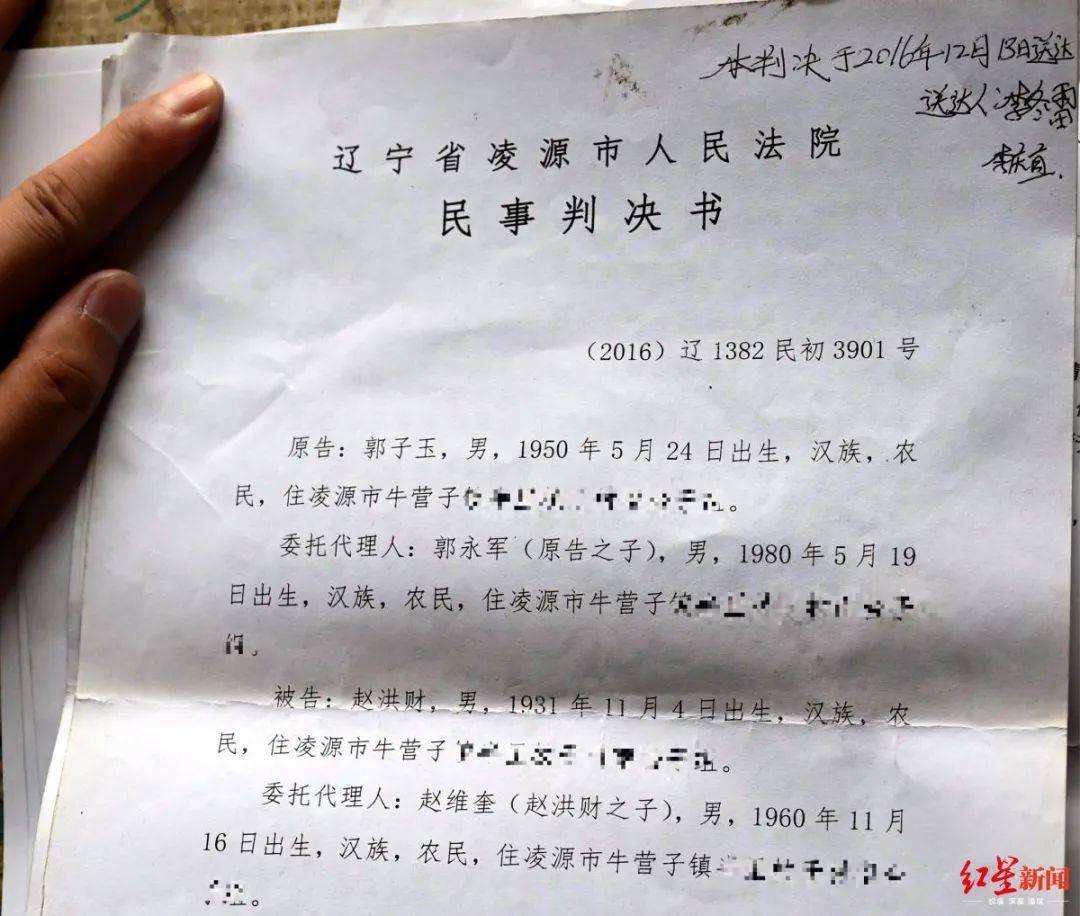 本判决于2016年12月13日送达
送达人:李冬雷
辽宁省凌源市人民法院
民事判决书
（2016）辽 1382 民初 3901 号
原告：郭子玉，男，1950 年 5 月 24 日出生，汉族，农
民，住凌源市牛营子
委托代理人：郭永军（原告之子），男，1980 年 5 月 19
日出生，汉族，农民，住凌源市牛营子镇
组。
被告：赵洪财，男，1931 年 11 月 4 日出生，汉族，农
民，住凌源市牛营子 组。
委托代理人：赵维奎（赵洪财之子），男，1960 年 11 月
16 日出生，汉族，农民，住凌源市牛营子镇
组。
红星新闻